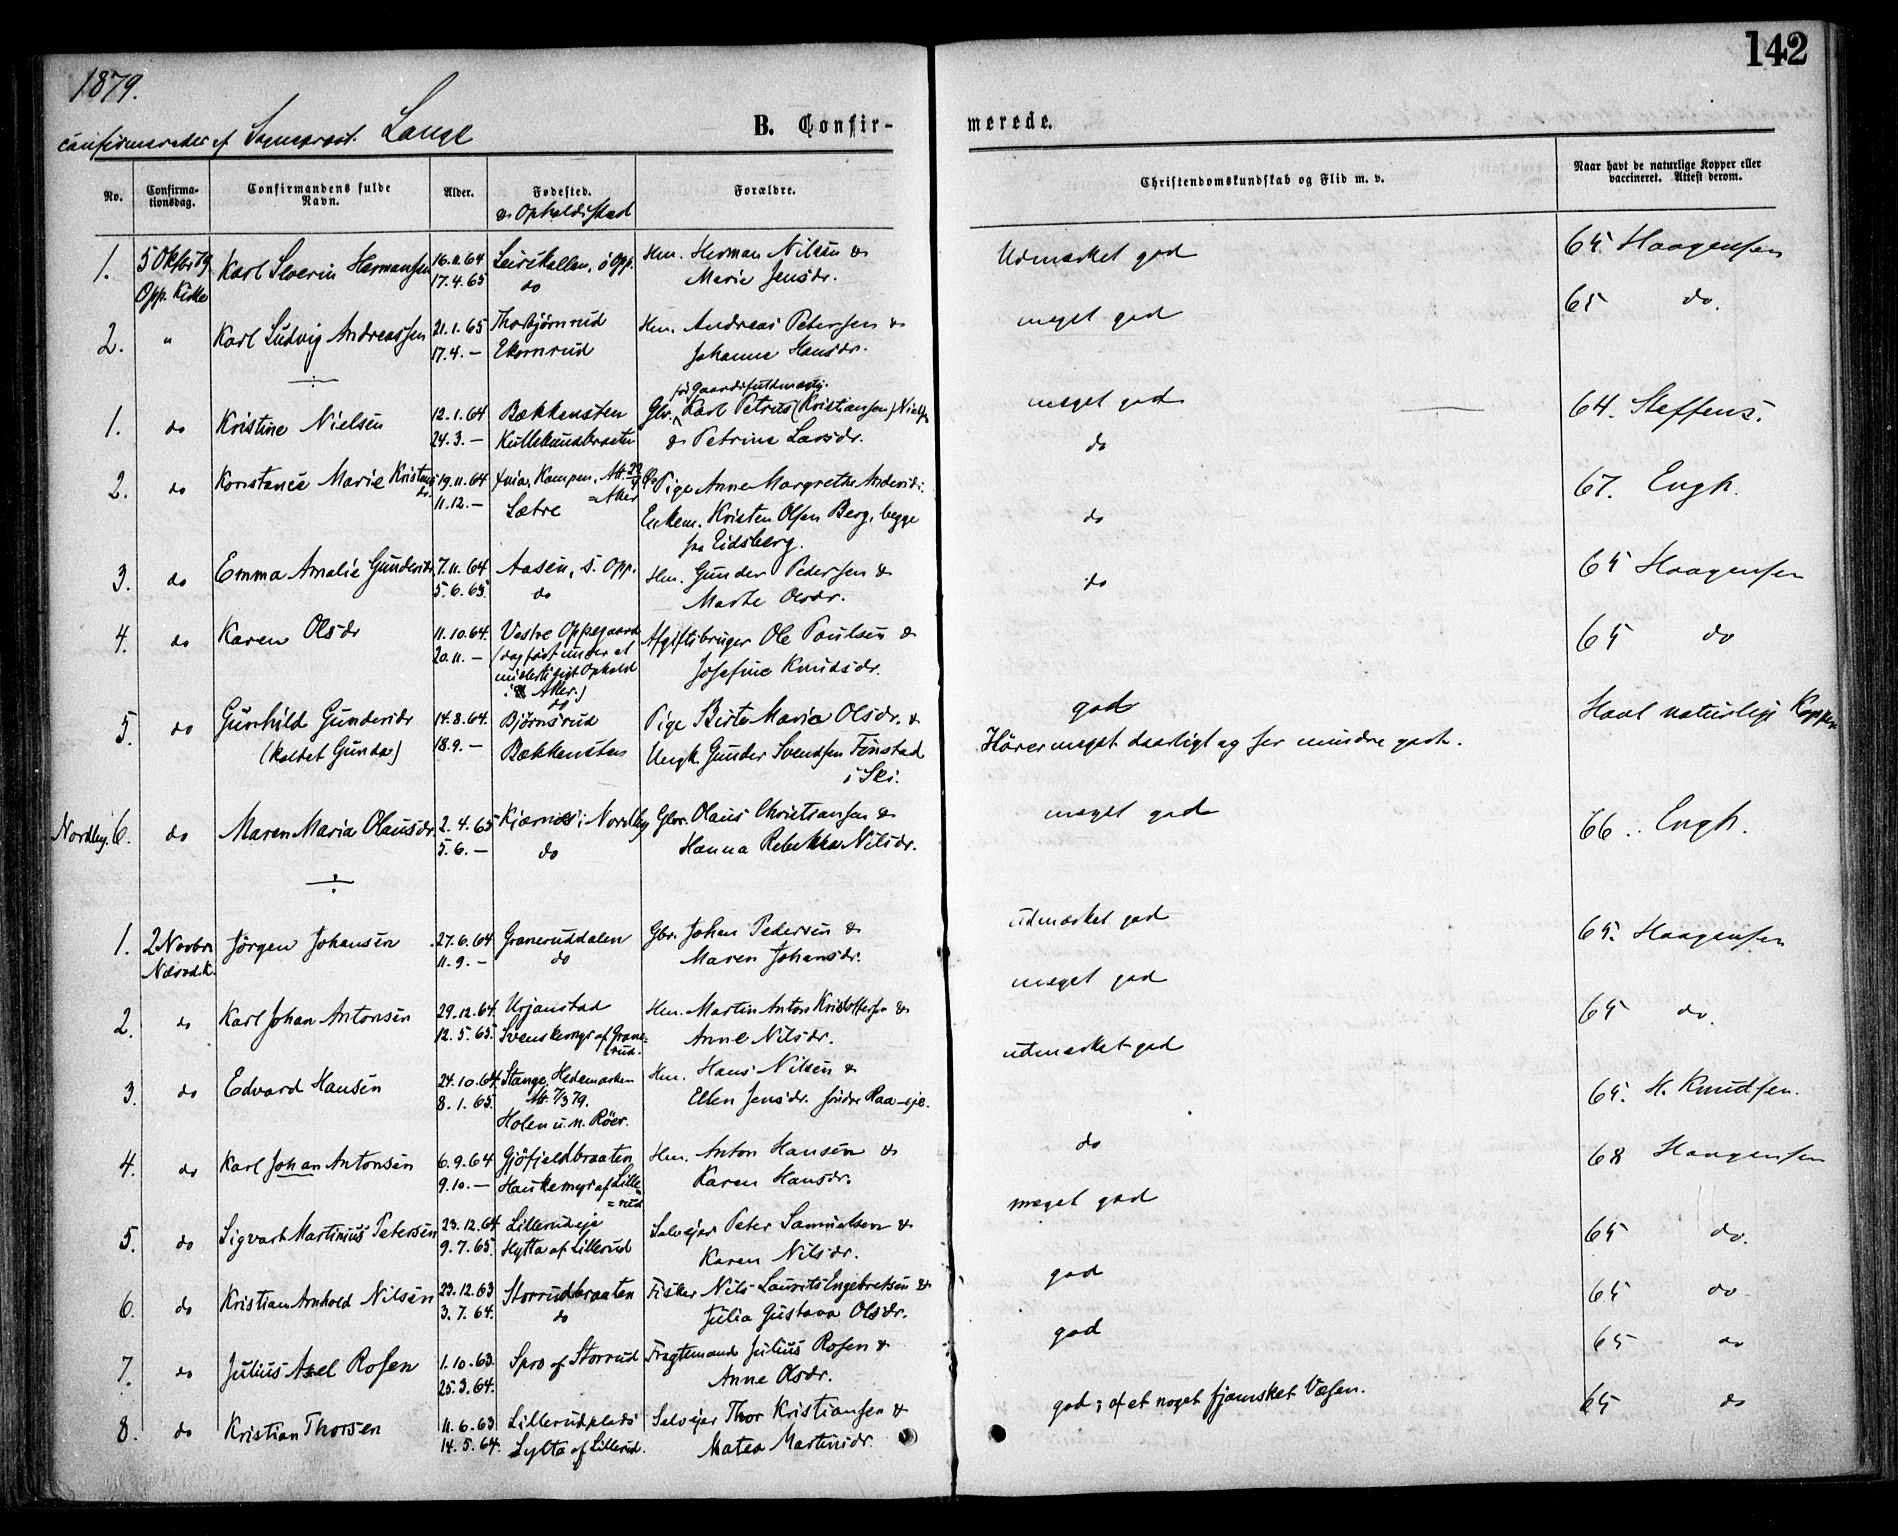 142
1879.
confirmerede af Sognepræst. Lange
B. Confirmerede.
No. Confirmationsdag. Confirmandens fulde Navn. Alder. Fødested. Forældre. Christendomskundskab og Flid m. v. Naar havt de naturlige Kopper eller vaccineret. Attest derom.
& Opholdsstad
1. 5 Oktbr 79 Karl Severin Hermansen 16.11.64 i Opp. Hm. Herman Nilsen & Udmærket god 65 Haagensen
Opp. Kirke 17.4.65 do Marie Jensdr.
2. " Karl Ludvig Andreassen 21.1.65 Thorbjørnrud Hm. Andreas Petersen & meget god 65 do.
17.4.— Ekornrud Johanne Hansdr.
÷
Gaardsfuldmægtig.
1. do Kristine Nielsen 12.1.64 Bækkensten Gbr. Karl Petrus (Kristiansen) Niels meget god 64. Steffens.
24.3.— & Petrine Larsdr.
2. do Konstance Marie Kristens 19.11.64 Xnia, Kampen, Att. Pige Anne Margrethe do 67. Engh.
dr. 11.12.— Sætre = Aker Enkem. Kristen Olsen Berg, begge
fra Eidsberg.
3. do Emma Amalie Gundersdr 7.11.64 Aasen, s. Opp. Hm. Gunder Pedersen & do 65 Haagensen
5.6.65 do Marte Olsdr.
4. do Karen Olsdr 11.10.64. Vestre Oppegaard Afgiftsbruger Ole Poulsen & do 65 do
20.11.— (dog født under et Josefine Knudsdr.
midlertidigt Ophold
i Aker.)
do
5. do Gunhild Gundersdr 14.8.64. Bjørnsrud Pige Berte Maria Olsdr. & god Havt naturlige Kopper
(kaldet Gunda) 18.9.— Bækkensten Ungk. Gunder Svendsen Finstad Hører meget daarligt og ser mindre godt.
i Ski.
Nordby. 6. do Maren Maria Olausdr. 2.4.65 Kjærnes i Nordby Gbr. Olaus Christiansen & meget god 66. Engh.
5.6.— do Hanna Rebekka Nilsdr.
÷
1. 2 Novbr. Jørgen Johansen 27.6.64 Graneruddalen Gbr. Johan Pedersen & udmærket god 65. Haagensen
Næsod. K. 11.9.— do Maren Johansdr.
2. do Karl Johan Antonsen 29.12.64. Urjanstad Hm. Martin Anton Kristoffersen & meget god 65 do.
12.5.65. Svenskemyr af Grane= Anne Nilsdr.
rud.
3. do Edvard Hansen 24.10.64 Stange, Hedemarken Hm. Hans Nilsen & udmærket god 65. H. Knudsen.
8.1.65. Att. 7/3 79. Ellen Jensdr. søndre Raa-eje.
Holen u. n. Röer.
4. do Karl Johan Antonsen 6.9.64 Gjøfjeldbraaten Hm. Anton Hansen & do 68 Haagensen
9.10.— Haukemyr af Lille Karen Hansdr.
=rud
5. do Sigvart Martinius Petersen 23.12.64 Lillerudeje Selvejer Peter Samuelsen & meget god 65 do.
9.7.65. Hytta af Lillerud Karen Nilsdr.
6. do Kristian Arnhold Nilsen 23.12.63 Storrudbraaten Fisker Nils Laurits Engebretsen & god 65 do
3.7.64. do Julia Gustava Olsdr.
7. do Julius Axel Rosen 1.10.63. Spro af Storrud Fragtemand Julius Rosen & god 65 do
25.3.64. Anne Olsdr.
8. do Kristian Thorsen 11.6.63 Lillerudplads Selvejer Thor Kristiansen & god; af et noget fjamsket Væsen. 65 do
14.5.64. Sylta af Lillerud. Matea Martinsdr.